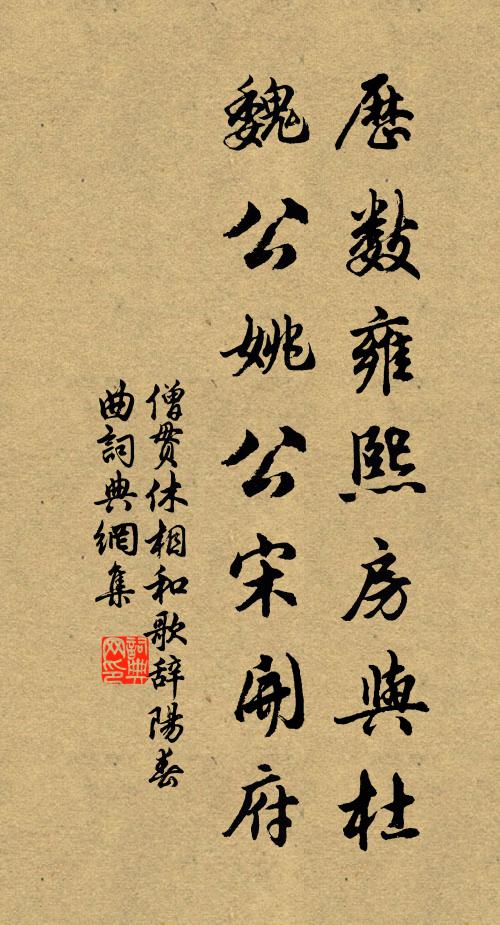 歷數雍熙房與杜
魏公姚公宋開府
僧貫休相和歌辭陽春
曲詞典網集
詞典網印